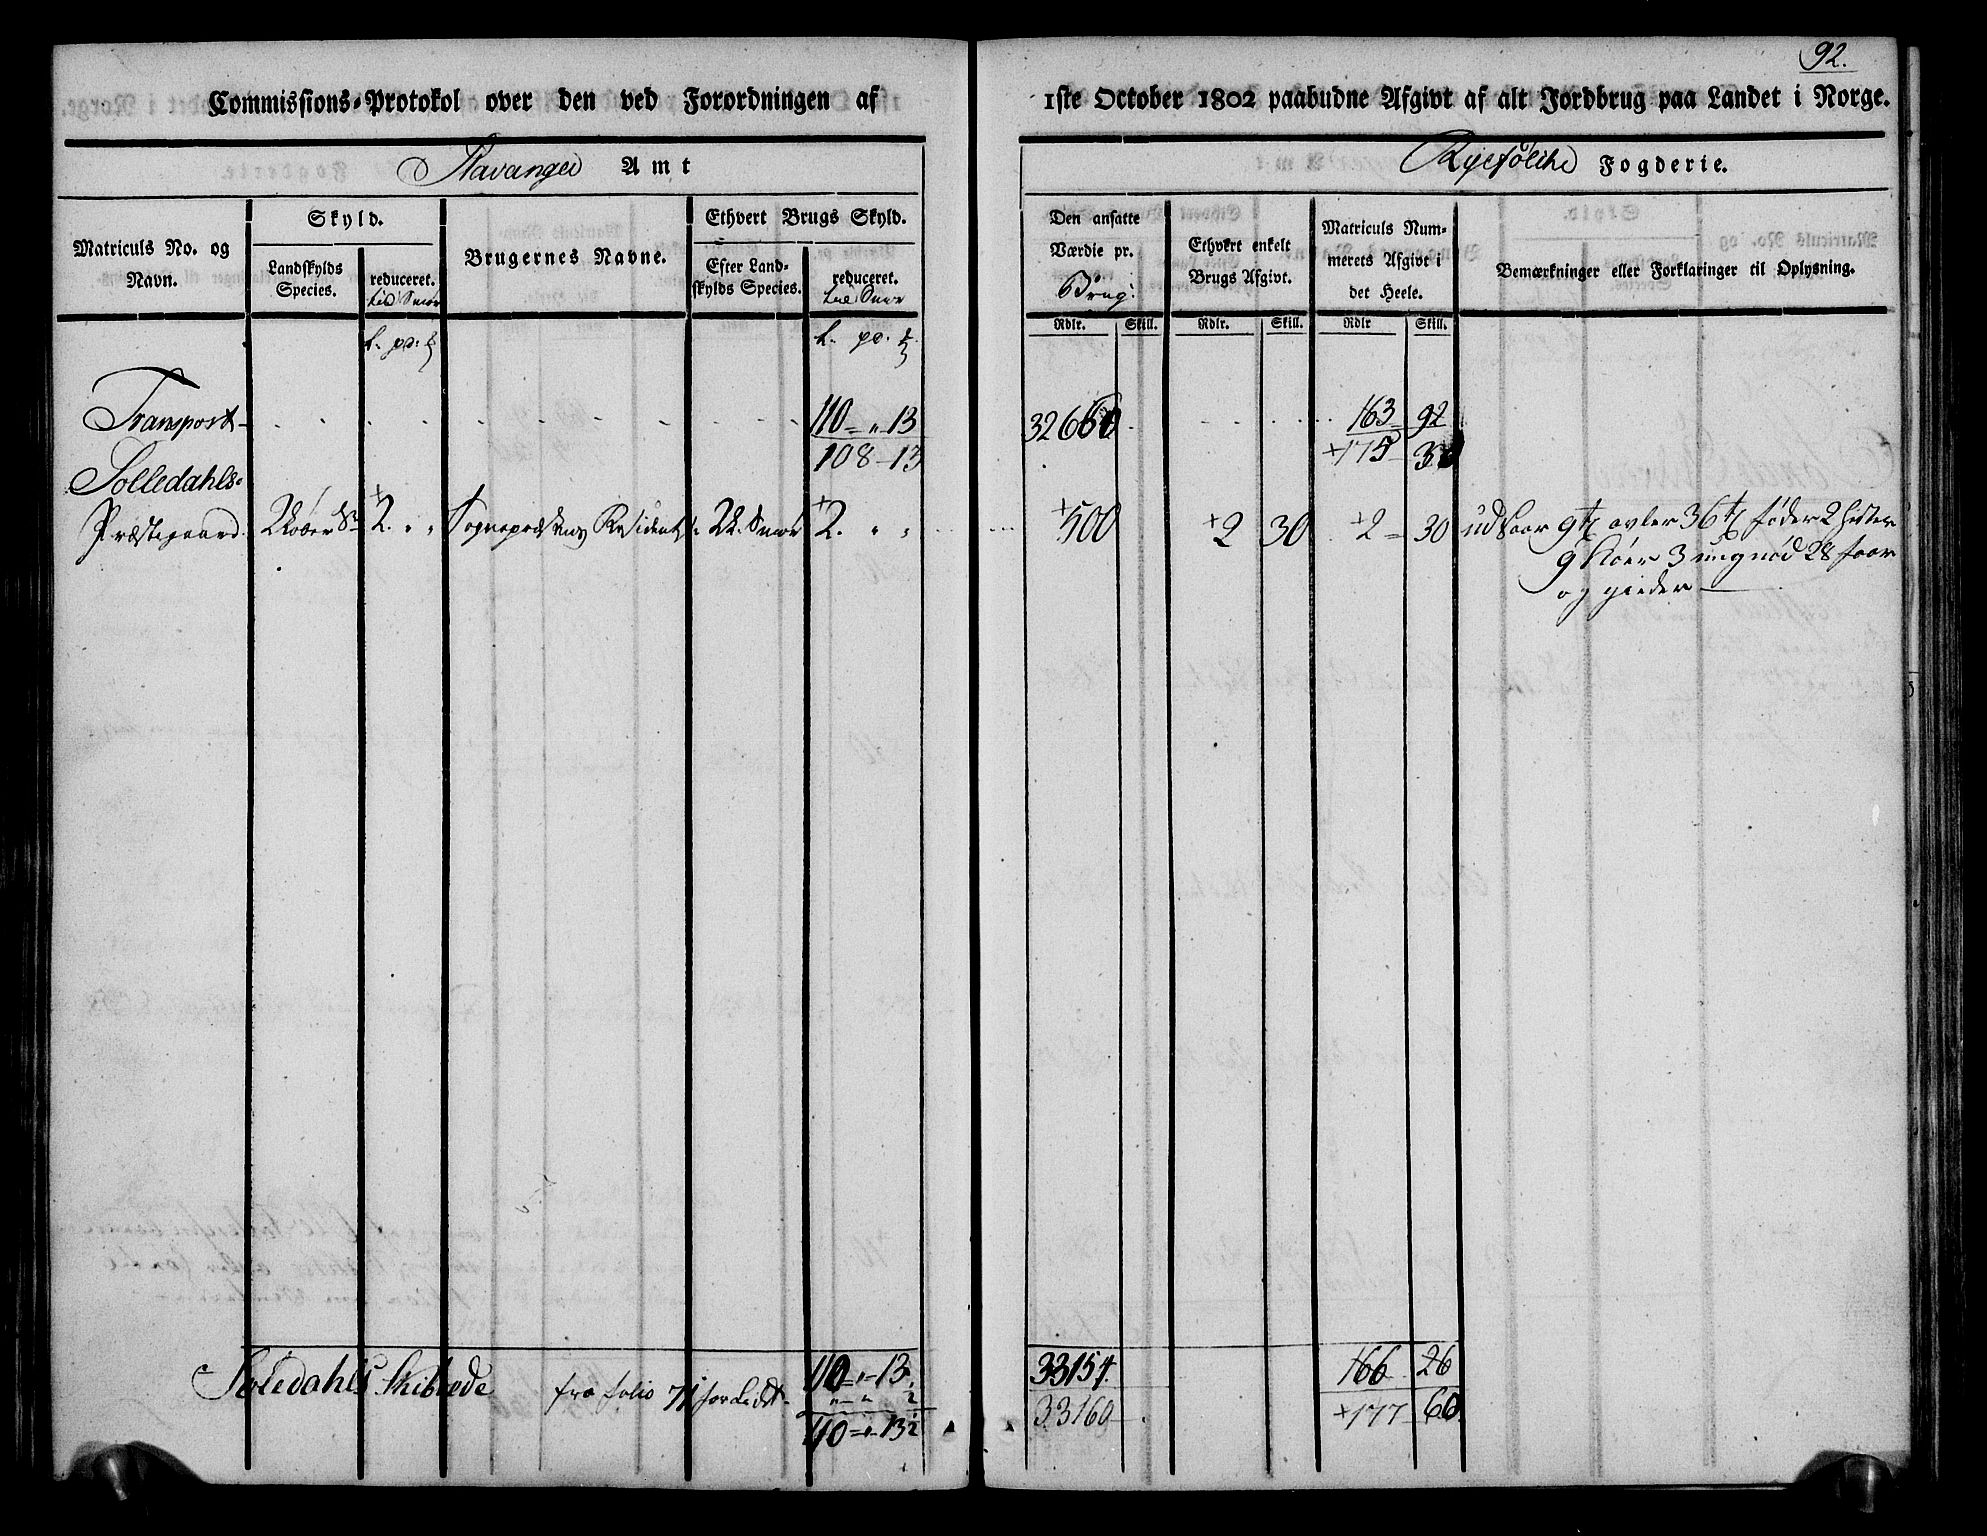 92.
Commissions-Protokol over den ved Forordningen af 1ste October 1802 paabudne Afgivt af alt Jordbrug paa Landet i Norge.
Stavanger Amt
Ryefølche Fogderie.
Matriculs No. og Navn.
Skyld.
Landskylds Species.
reduceret.
til Smør
Brugernes Navne.
Ethvert Brugs Skyld.
Efter Landskylds Species.
reduceret.
til Smør
Den ansatte Værdie pr.
Brug.
Ethvert enkelt Brugs Afgivt.
Matriculs Nummerets Afgivt i det Heele.
Bemærkninger eller Forklaringer til Oplysning.
Rdlr. Skill. Rdlr. Skill. Rdlr Skill.
Transport 110 = " 13 32660 163 92
108 - 13 +175 30
Solledahls
Præstegaard 2 Løber Sm +2. " " Sognepræstens Residents 2 Smør +2. " " +500 +2 30 +2 = 30 udsaar 9 avler 36 føder 2 hester
9 Kiøer 3 ungnød 28 faar
og gieder
Soledahls Skibrede fra folio 71 forledet 110 = " 13 33154. 166 26
" " ½ 33160 +177 60.
110 = " 13½